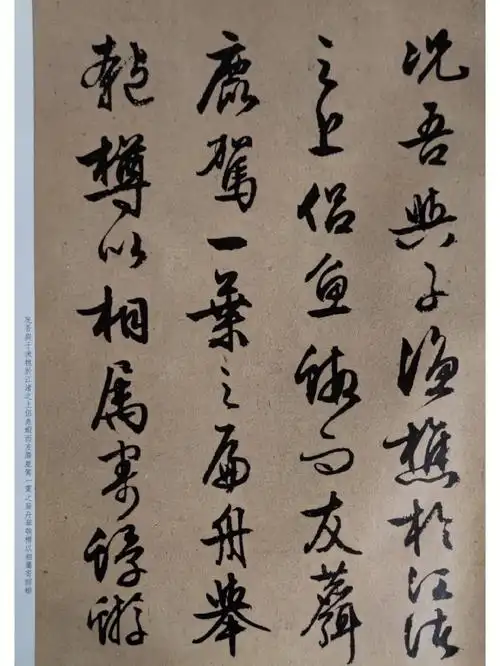 况吾與子漁樵於江渚
之上侣魚蝦而友麋
鹿駕一葉之扁舟舉
匏樽以相属寄蜉蝣
况吾與子漁樵於江渚之上侣魚蝦而友麋鹿駕一葉之扁舟舉匏樽以相屬寄蜉蝣